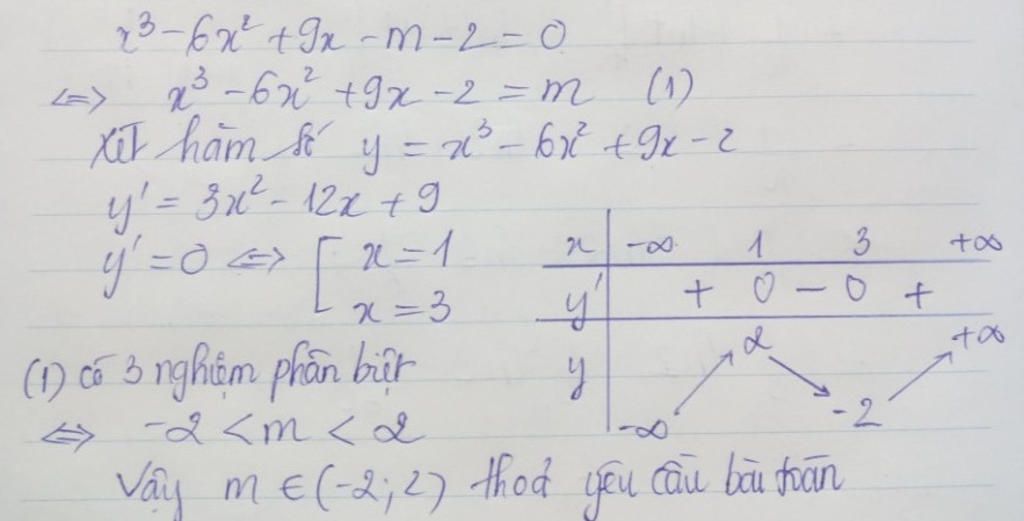 x³ - 6x² + 9x - m - 2 = 0
<=> x³ - 6x² + 9x - 2 = m (1)
Xét hàm số y = x³ - 6x² + 9x - 2
y' = 3x² - 12x + 9
y' = 0 <=> [ x = 1
x = 3
x | -∞ 1 3 +∞
y' | + 0 - 0 +
y | -∞ ↗ 2 ↘ -2 ↗ +∞
(1) có 3 nghiệm phân biệt
<=> -2 < m < 2
Vậy m ∈ (-2; 2) thoả yêu cầu bài toán